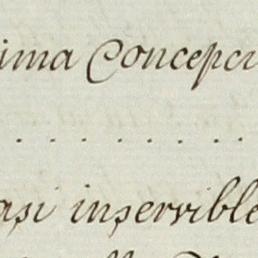 ima Concepci
. . . . . . . .
asi inservible